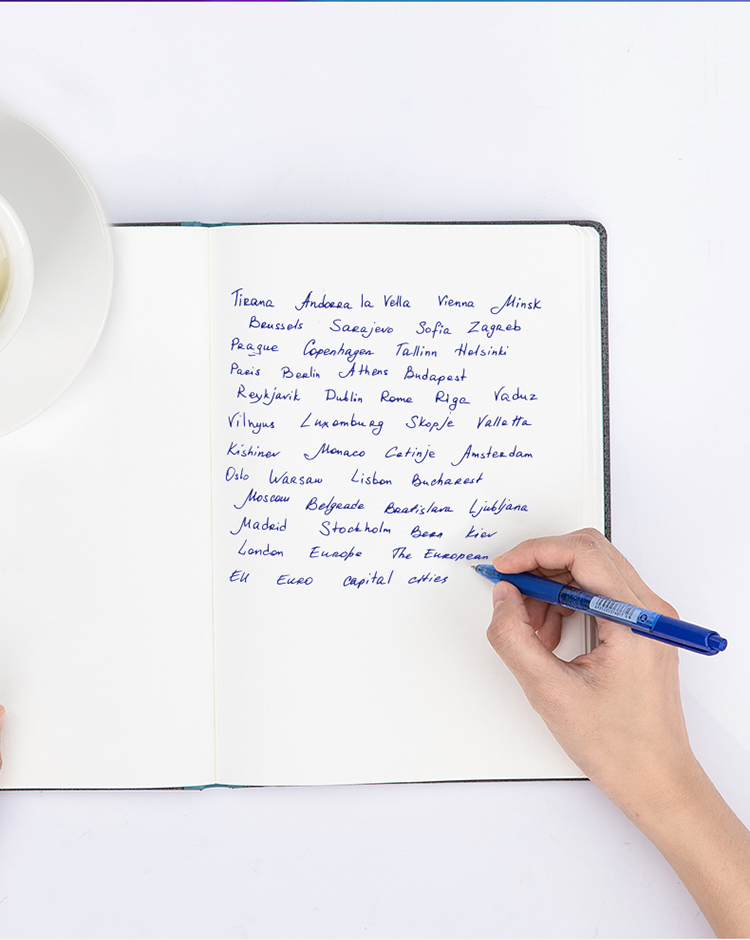 Tirana Andorra la Vella Vienna Minsk
Brussels Sarajevo Sofia Zagreb
Prague Copenhagen Tallinn Helsinki
Paris Berlin Athens Budapest
Reykjavik Dublin Rome Riga Vaduz
Vilnyus Luxomburg Skopje Valletta
Kishinev Monaco Cetinje Amsterdam
Oslo Warsaw Lisbon Bucharest
Moscow Belgrade Bratislava Ljubljana
Madrid Stockholm Bern Kiev
London Europe The European
EU Euro capital cities